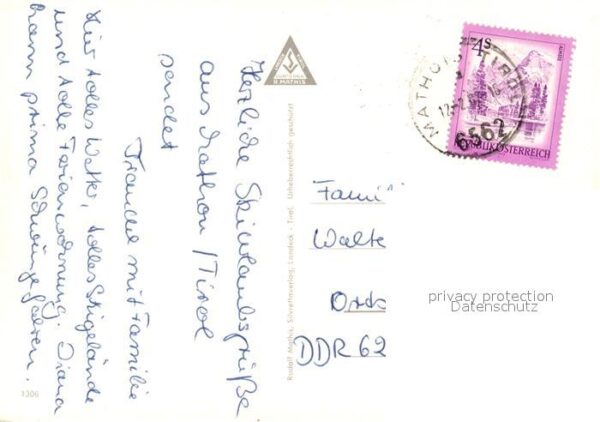 Herzliche Skiurlaubsgrüße
aus Mathon / Tirol
sendet
Traudel mit Familie
Hier tolles Wetter, tolles Skigelände
und tolle Ferienwohnung. Diana
kann prima Schwünge fahren.
1306
R MATHIS
Rudolf Mathis, Silvrettaverlag, Landeck - Tirol. Urheberrechtlich geschützt
4 S
REPUBLIK ÖSTERREICH
MATHON TIROL
6562
Fami
Walte
DDR 62
privacy protection
Datenschutz